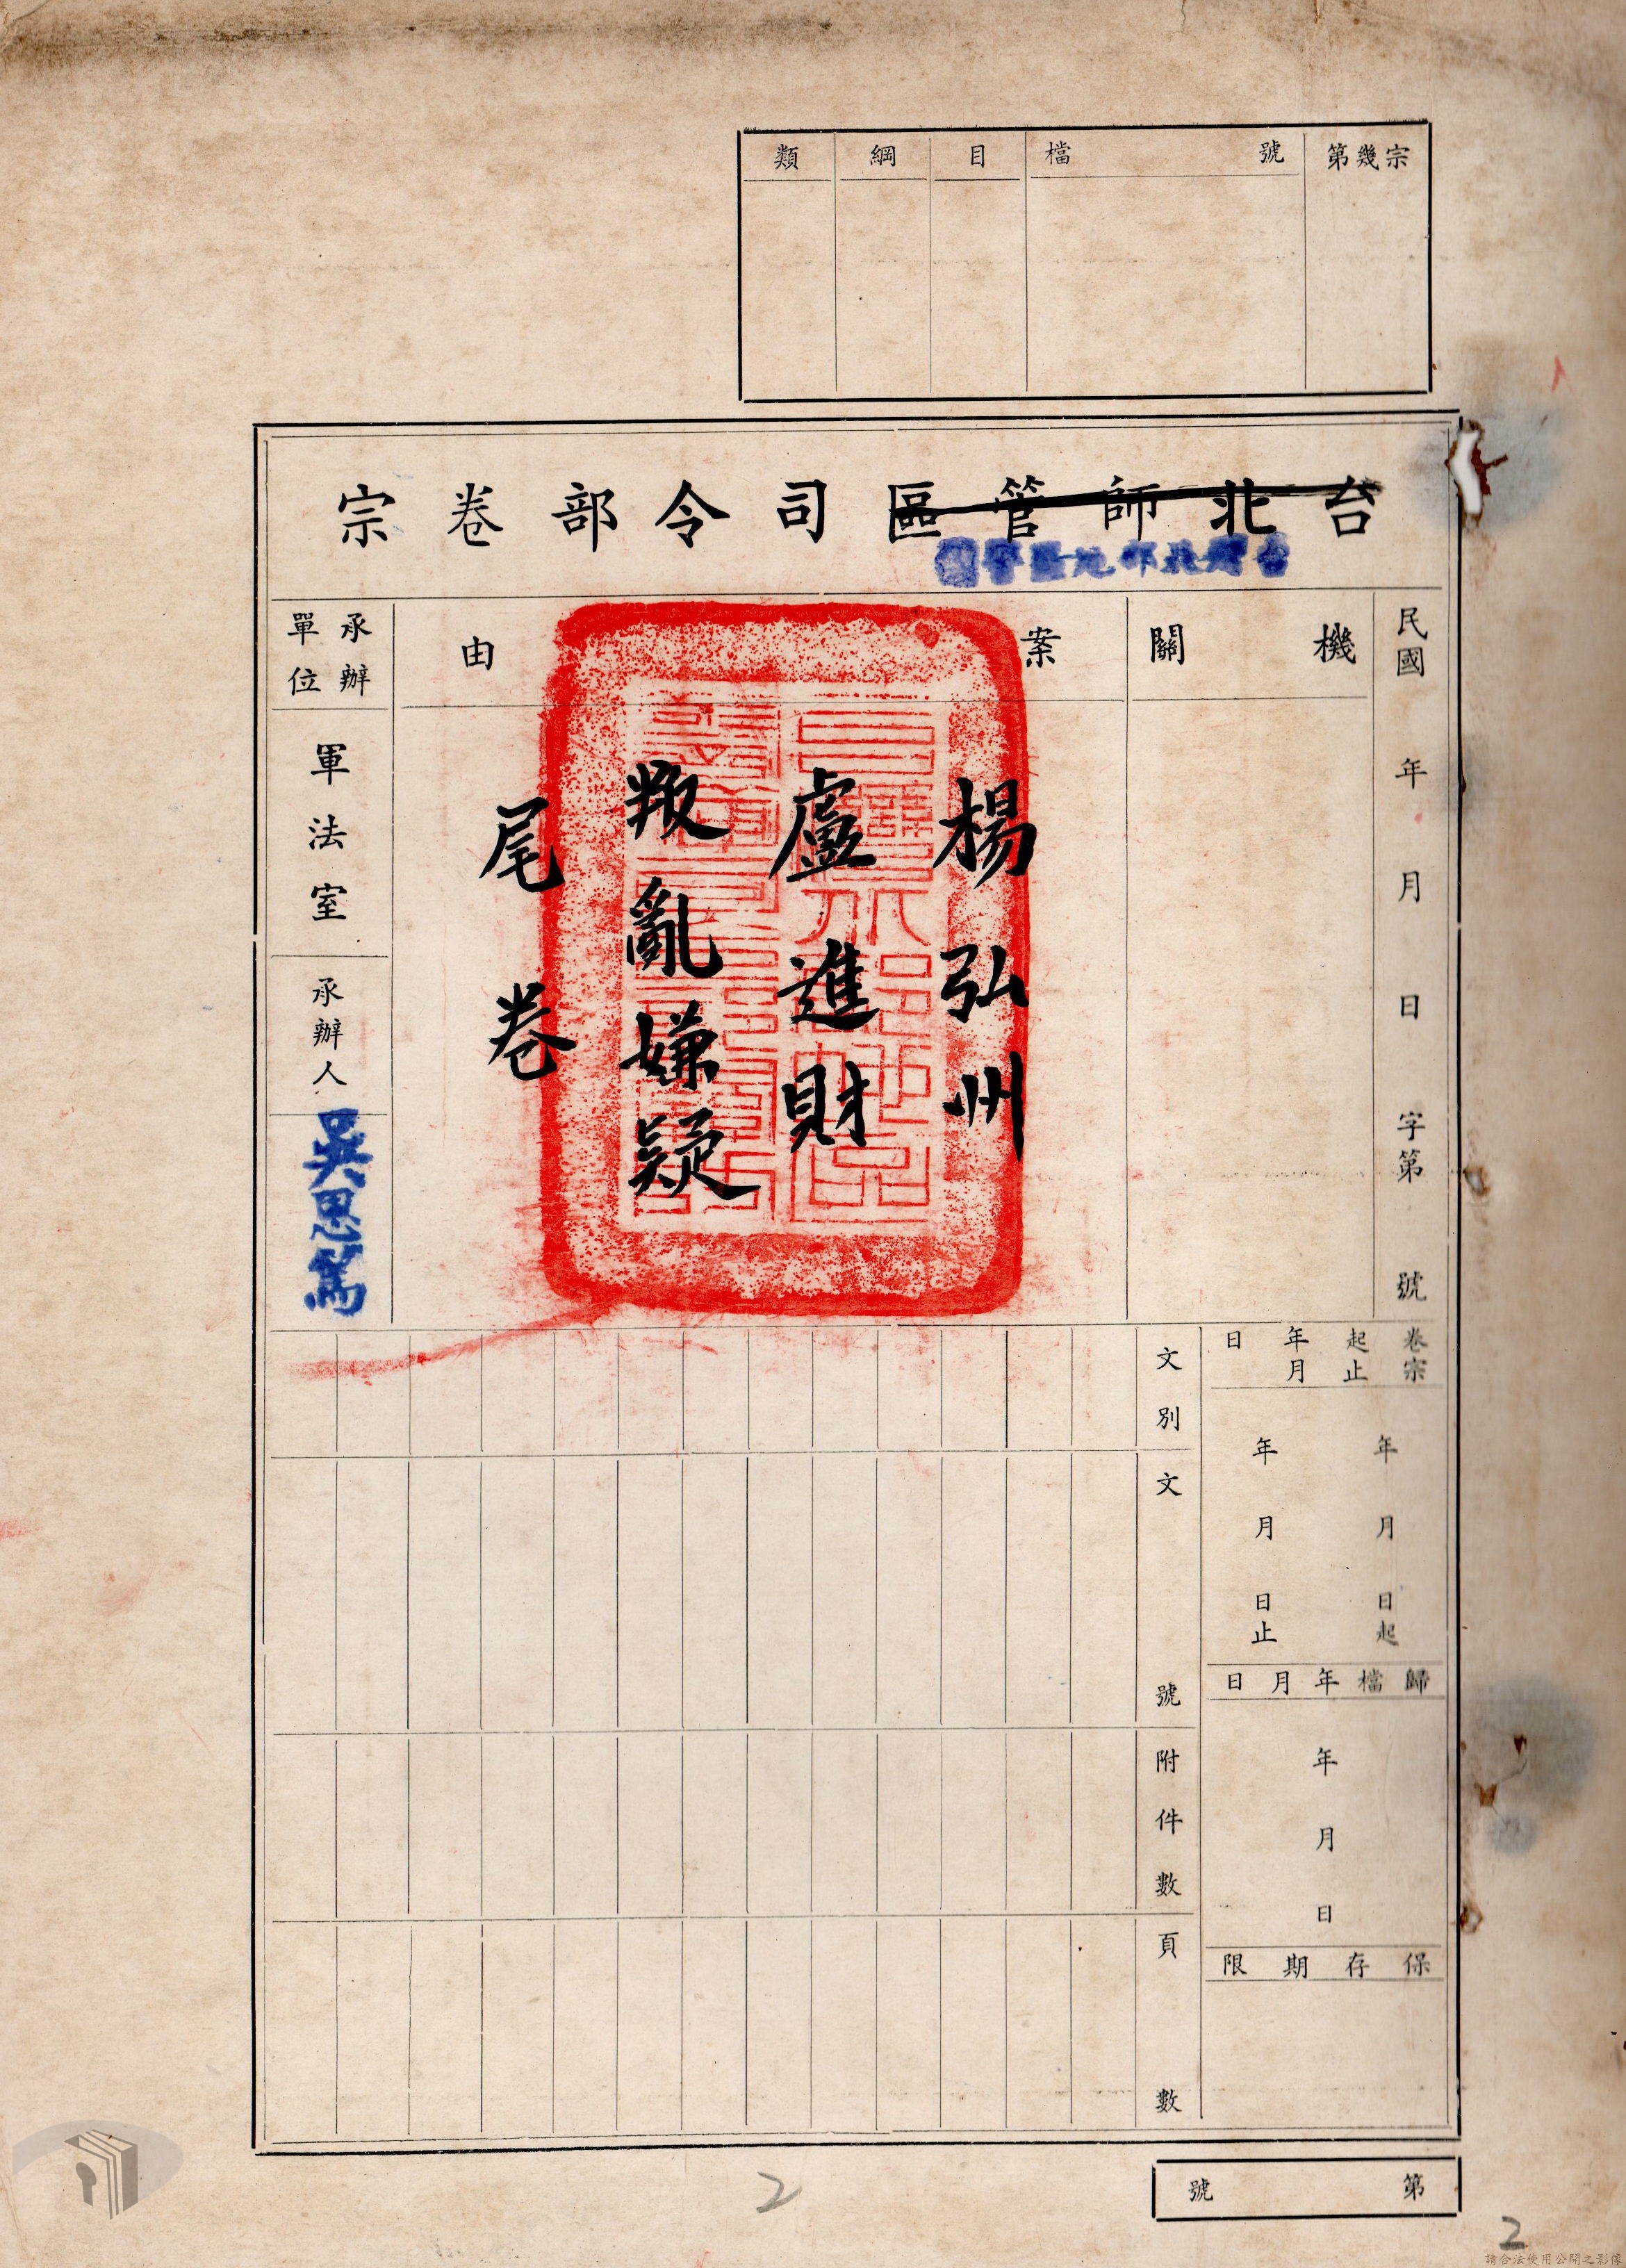 類 綱 目 檔號 第幾宗
台北師管區司令部卷宗
台灣北部地區警備
民國 年 月 日 字第 號
機關
案由
楊弘州
盧進財
叛亂嫌疑
尾卷
承辦單位
軍法室
承辦人
吳思篤
卷宗起止年月日
年 月 日起
年 月 日止
歸檔年月日
年 月 日
保存期限
文別
文號
附件數
頁數
第 號
2
2
請合法使用公開之影像